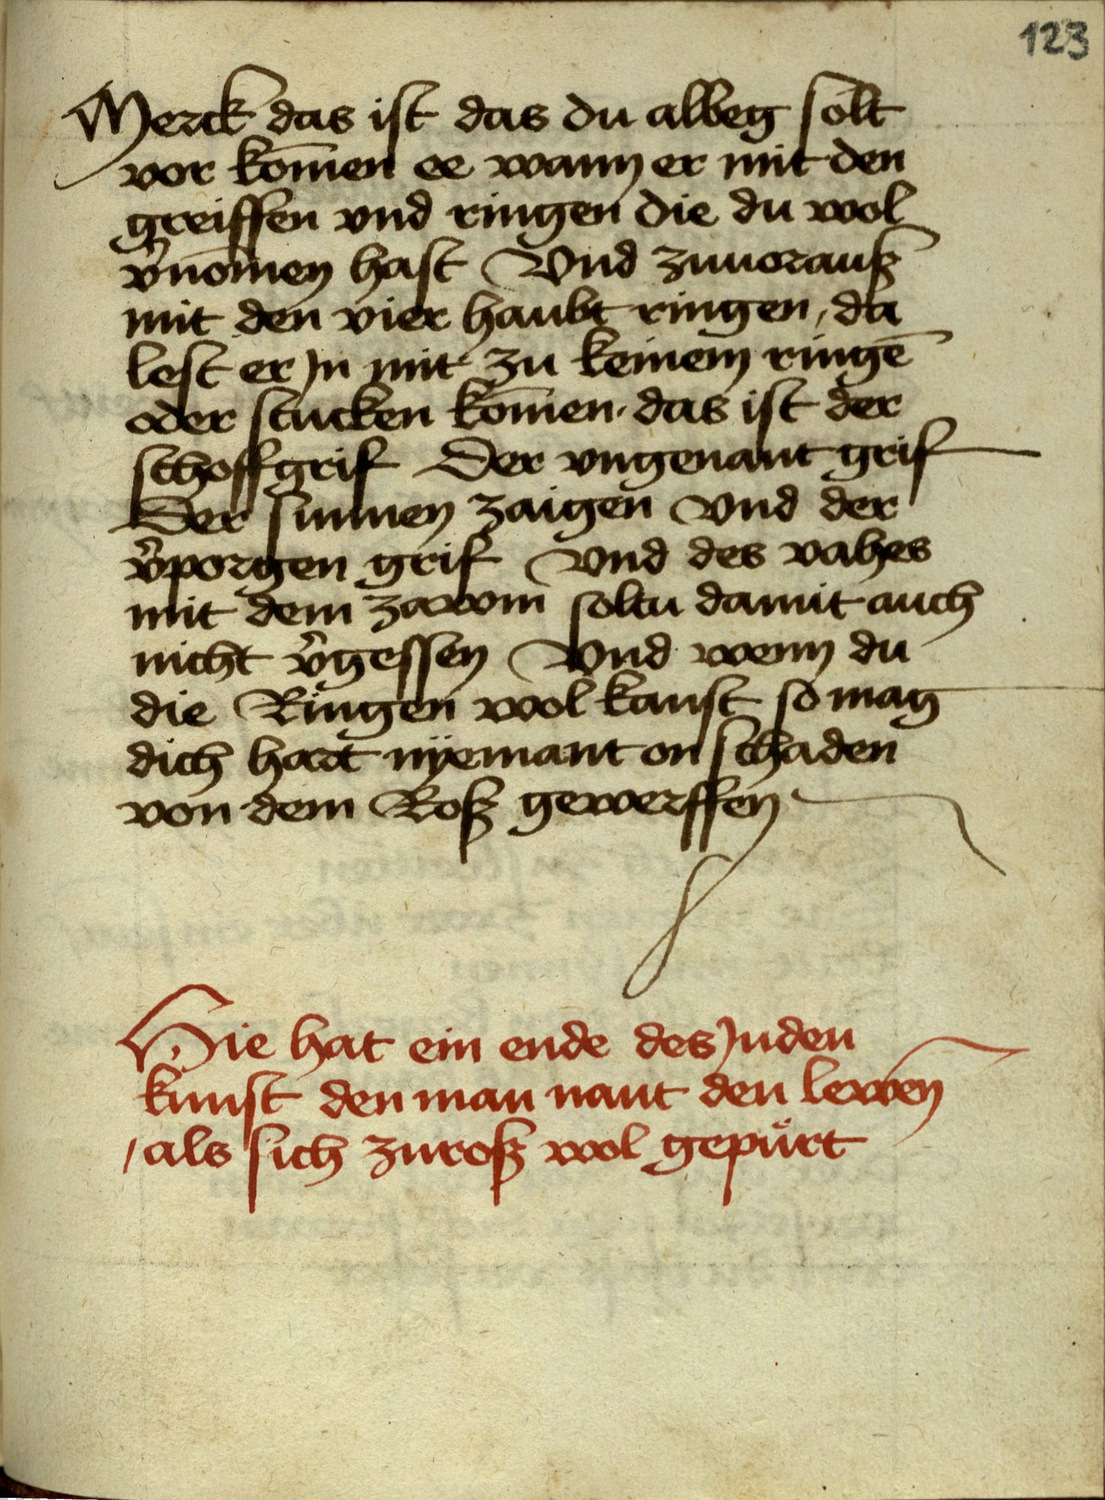 123
Merck das ist das du albeg solt
vor kom̄en ee wann er mit den
greiffen vnd ringen die du wol
v̾nom̄en hast Vnd zuuorauß
mit den vier haubt ringen, da
lest er Jn mit zu keinem ringē
oder stucken kom̄en. das ist der
schoffgrif Der vngenant grif
Der sunnen zaigen Vnd der
v̾porgen grif Vnd des vahes
mit dem zawm soltu damit auch
nicht v̾gessen Vnd wenn du
die Ringen wol kanst so mag
dich hart nÿemant on schaden
von dem Roß gewerffen
Hie hat ein ende des Juden
kunst den man nant den lewen
/als sich zuroß wol gepu̇rt